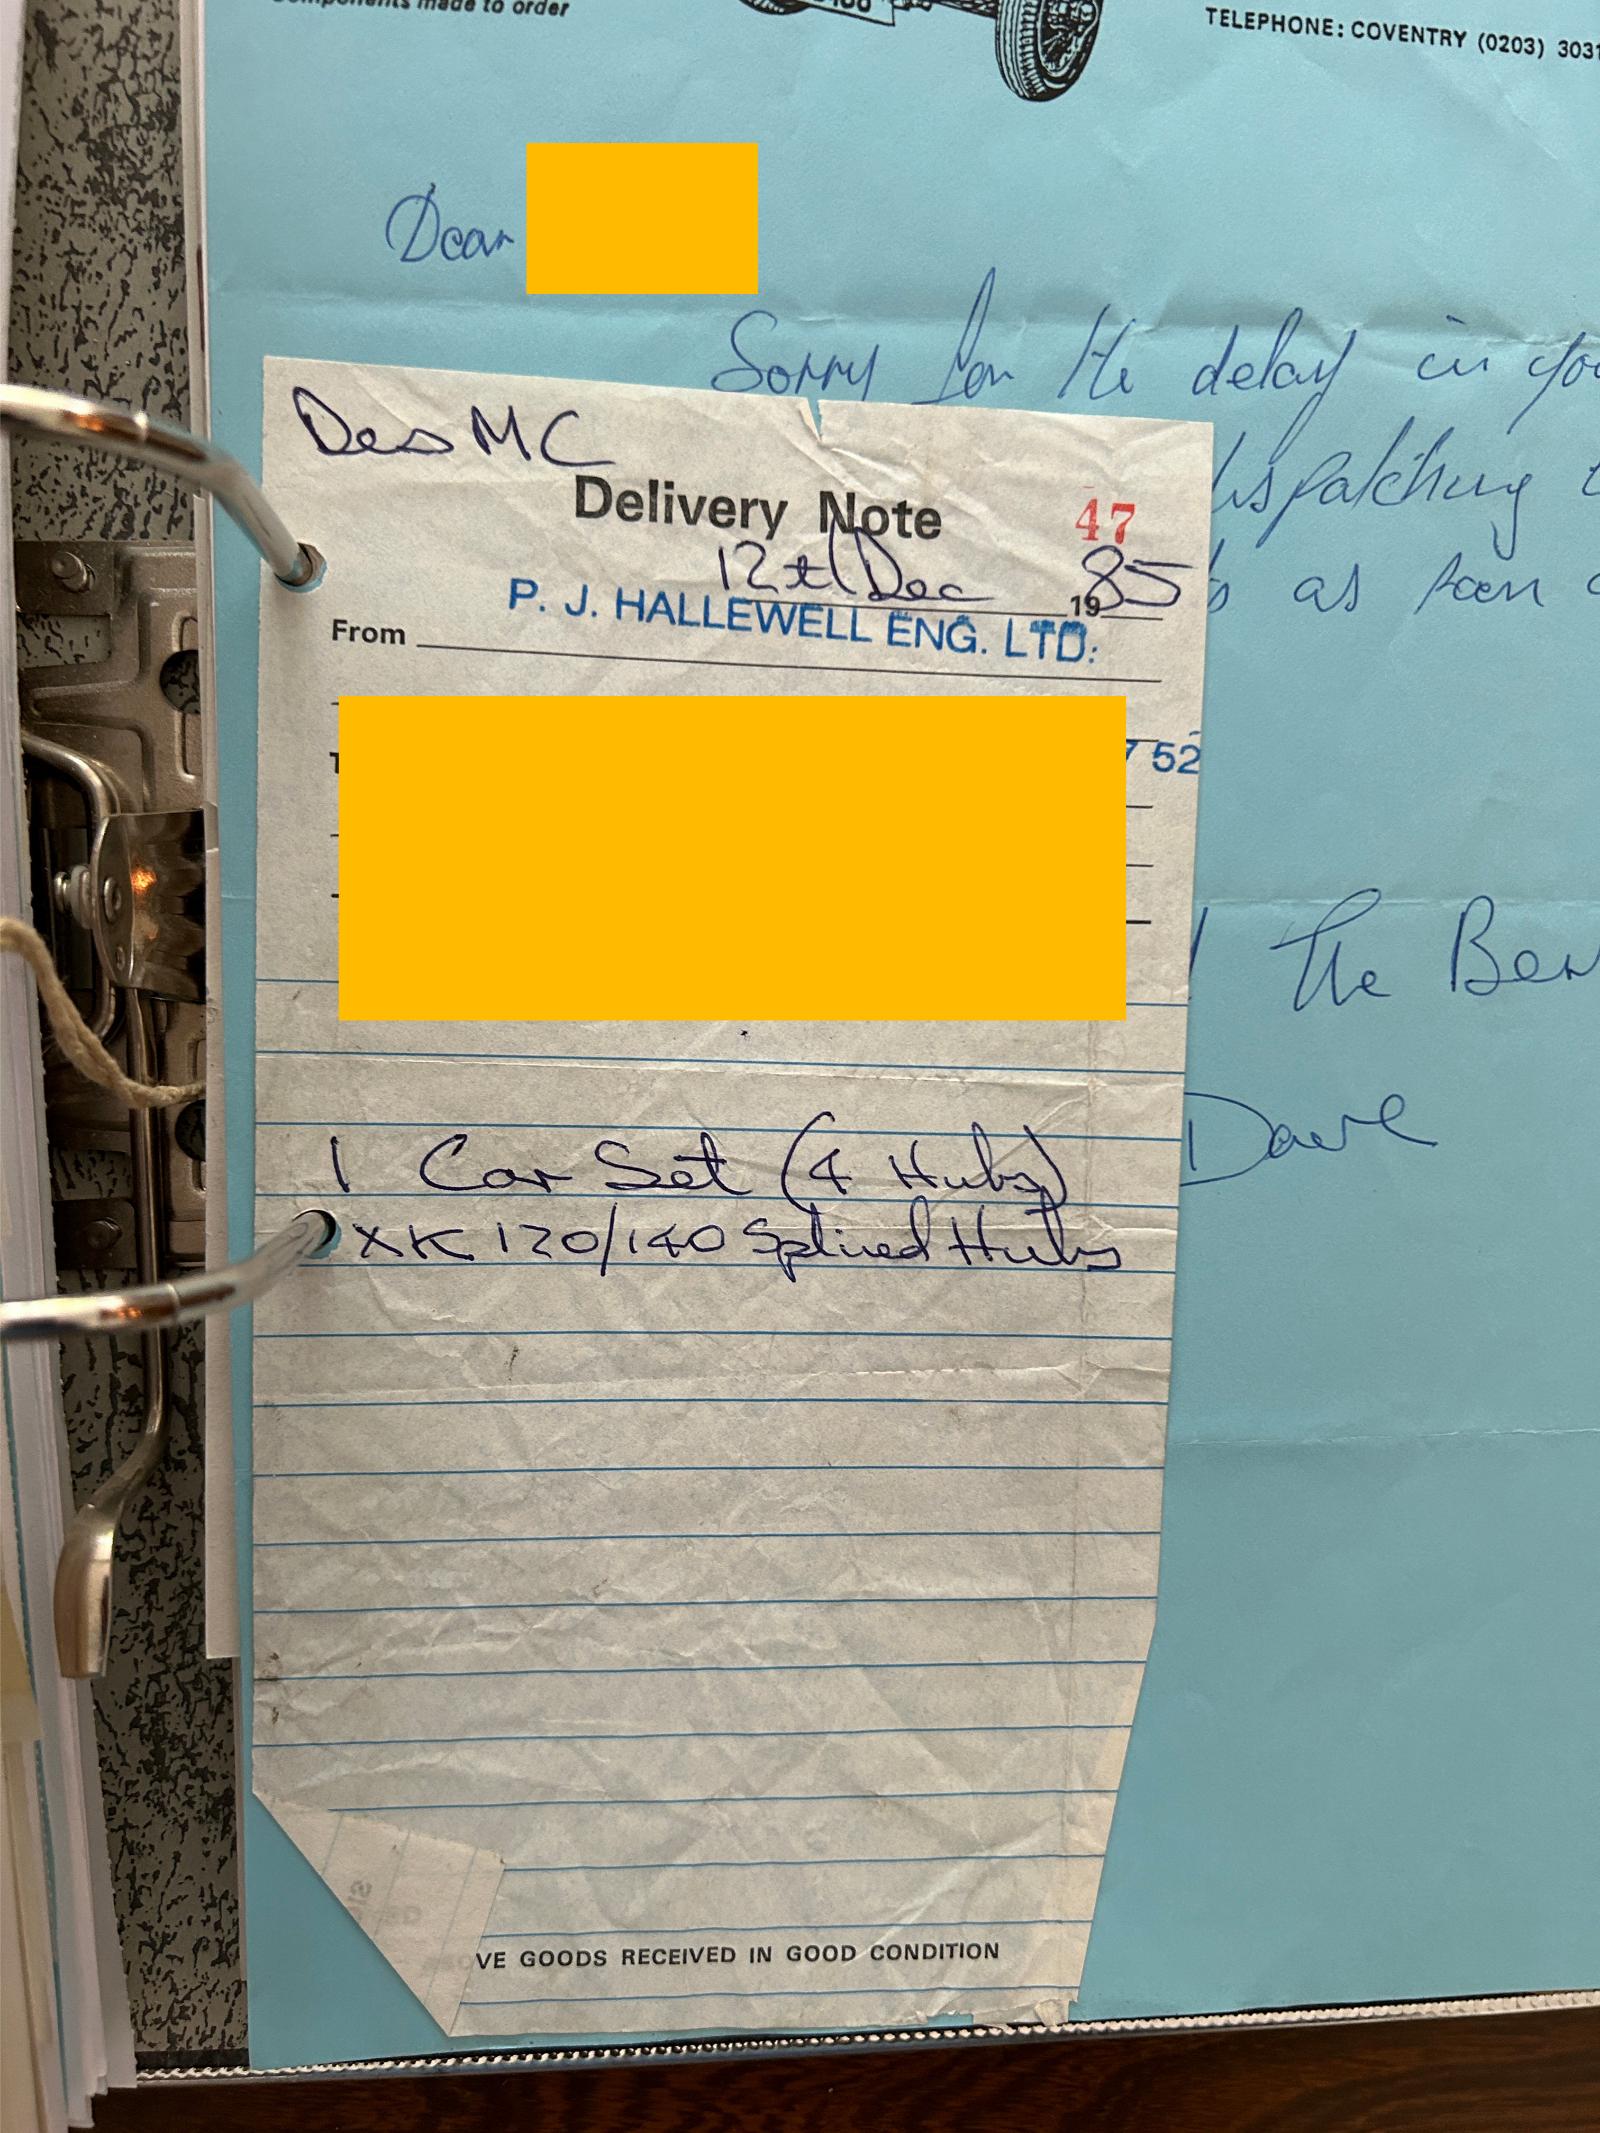 Components made to order
TELEPHONE: COVENTRY (0203) 3031
Dear
Sorry for the delay in you
dispatching
as soon
The Bes
Dave
Des MC
Delivery Note 47
12th Dec 1985
From P. J. HALLEWELL ENG. LTD:
52
1 Car Set (4 Hubs)
XK 120/140 Splined Hubs
VE GOODS RECEIVED IN GOOD CONDITION